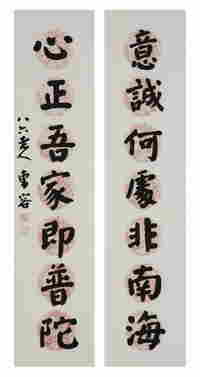 意誠何處非南海
心正吾家即普陀
八六老人雪容